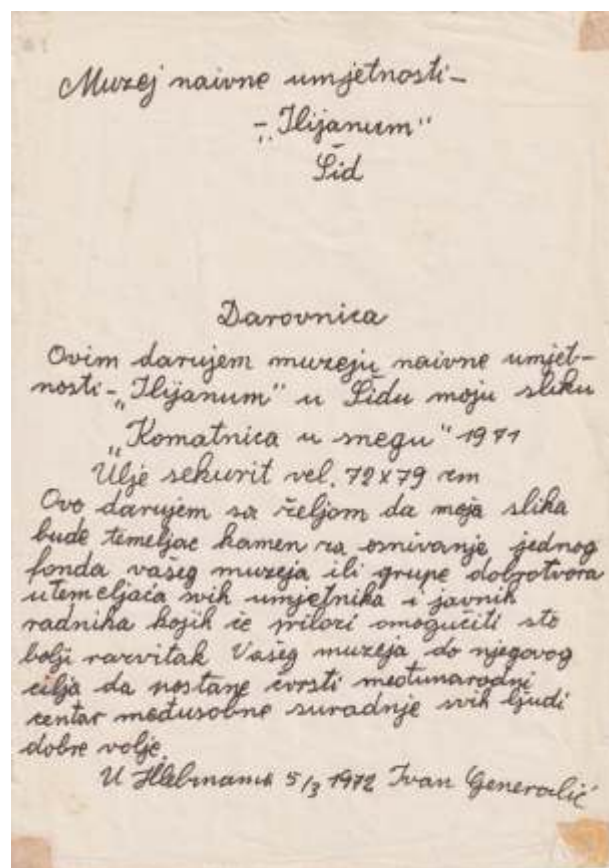 Muzej naivne umjetnosti-
-„Ilijanum"
Šid
Darovnica
Ovim darujem muzeju naivne umjet-
nosti-„Ilijanum" u Šidu moju sliku
„Komatnica u snegu" 1971
Ulje sekurit vel. 72x79 cm
Ovo darujem sa željom da moja slika
bude temeljac kamen za osnivanje jednog
fonda vašeg muzeja ili grupe dobrotvora
utemeljača svih umjetnika i javnih
radnika kojih će prilozi omogučiti što
bolji razvitak Vašeg muzeja do njegovog
cilja da postane čvrsti međunarodni
centar međusobne suradnje svih ljudi
dobre volje.
U Hlebinama 5/3 1972 Ivan Generalić